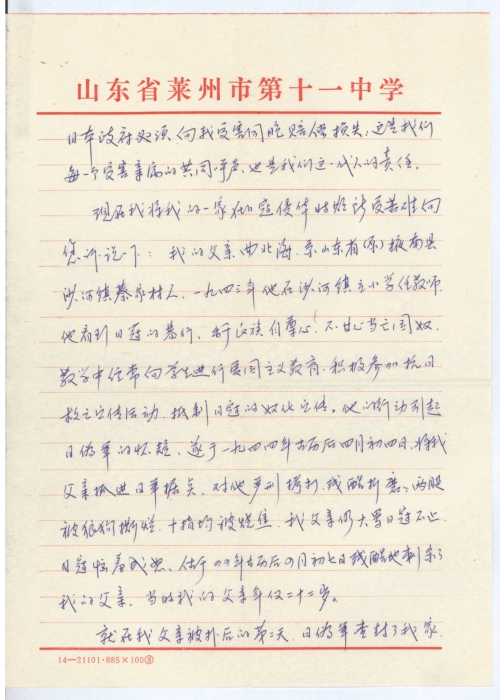 山东省莱州市第十一中学
日本政府必须向我受害同胞赔偿损失，这是我们
每一个受害亲属的共同呼声，也是我们这一代人的责任。
现在我将我的一家在日寇侵华时所受苦难向
您诉说一下：我的父亲曲北海，系山东省（原）掖南县
沙河镇蔡家村人，一九四三年他在沙河镇立小学任教师，
他看到日寇的暴行，出于民族自尊心，不甘心当亡国奴，
教学中经常向学生进行爱国主义教育，积极参加抗日
救亡宣传活动，抵制日寇的奴化宣传。他的行动引起
日伪军的怀疑，遂于一九四四年古历后四月初四日将我
父亲抓进日军据点，对他严刑拷打，残酷折磨，两腿
被狼狗撕烂，十指均被烧焦，我父亲仍大骂日寇不止，
日寇恼羞成怒，估于四四年古历后四月初七日残酷地刺杀了
我的父亲，当时我的父亲年仅二十二岁。
就在我父亲被抓后的第二天，日伪军查封了我家
14—21101·885×100③